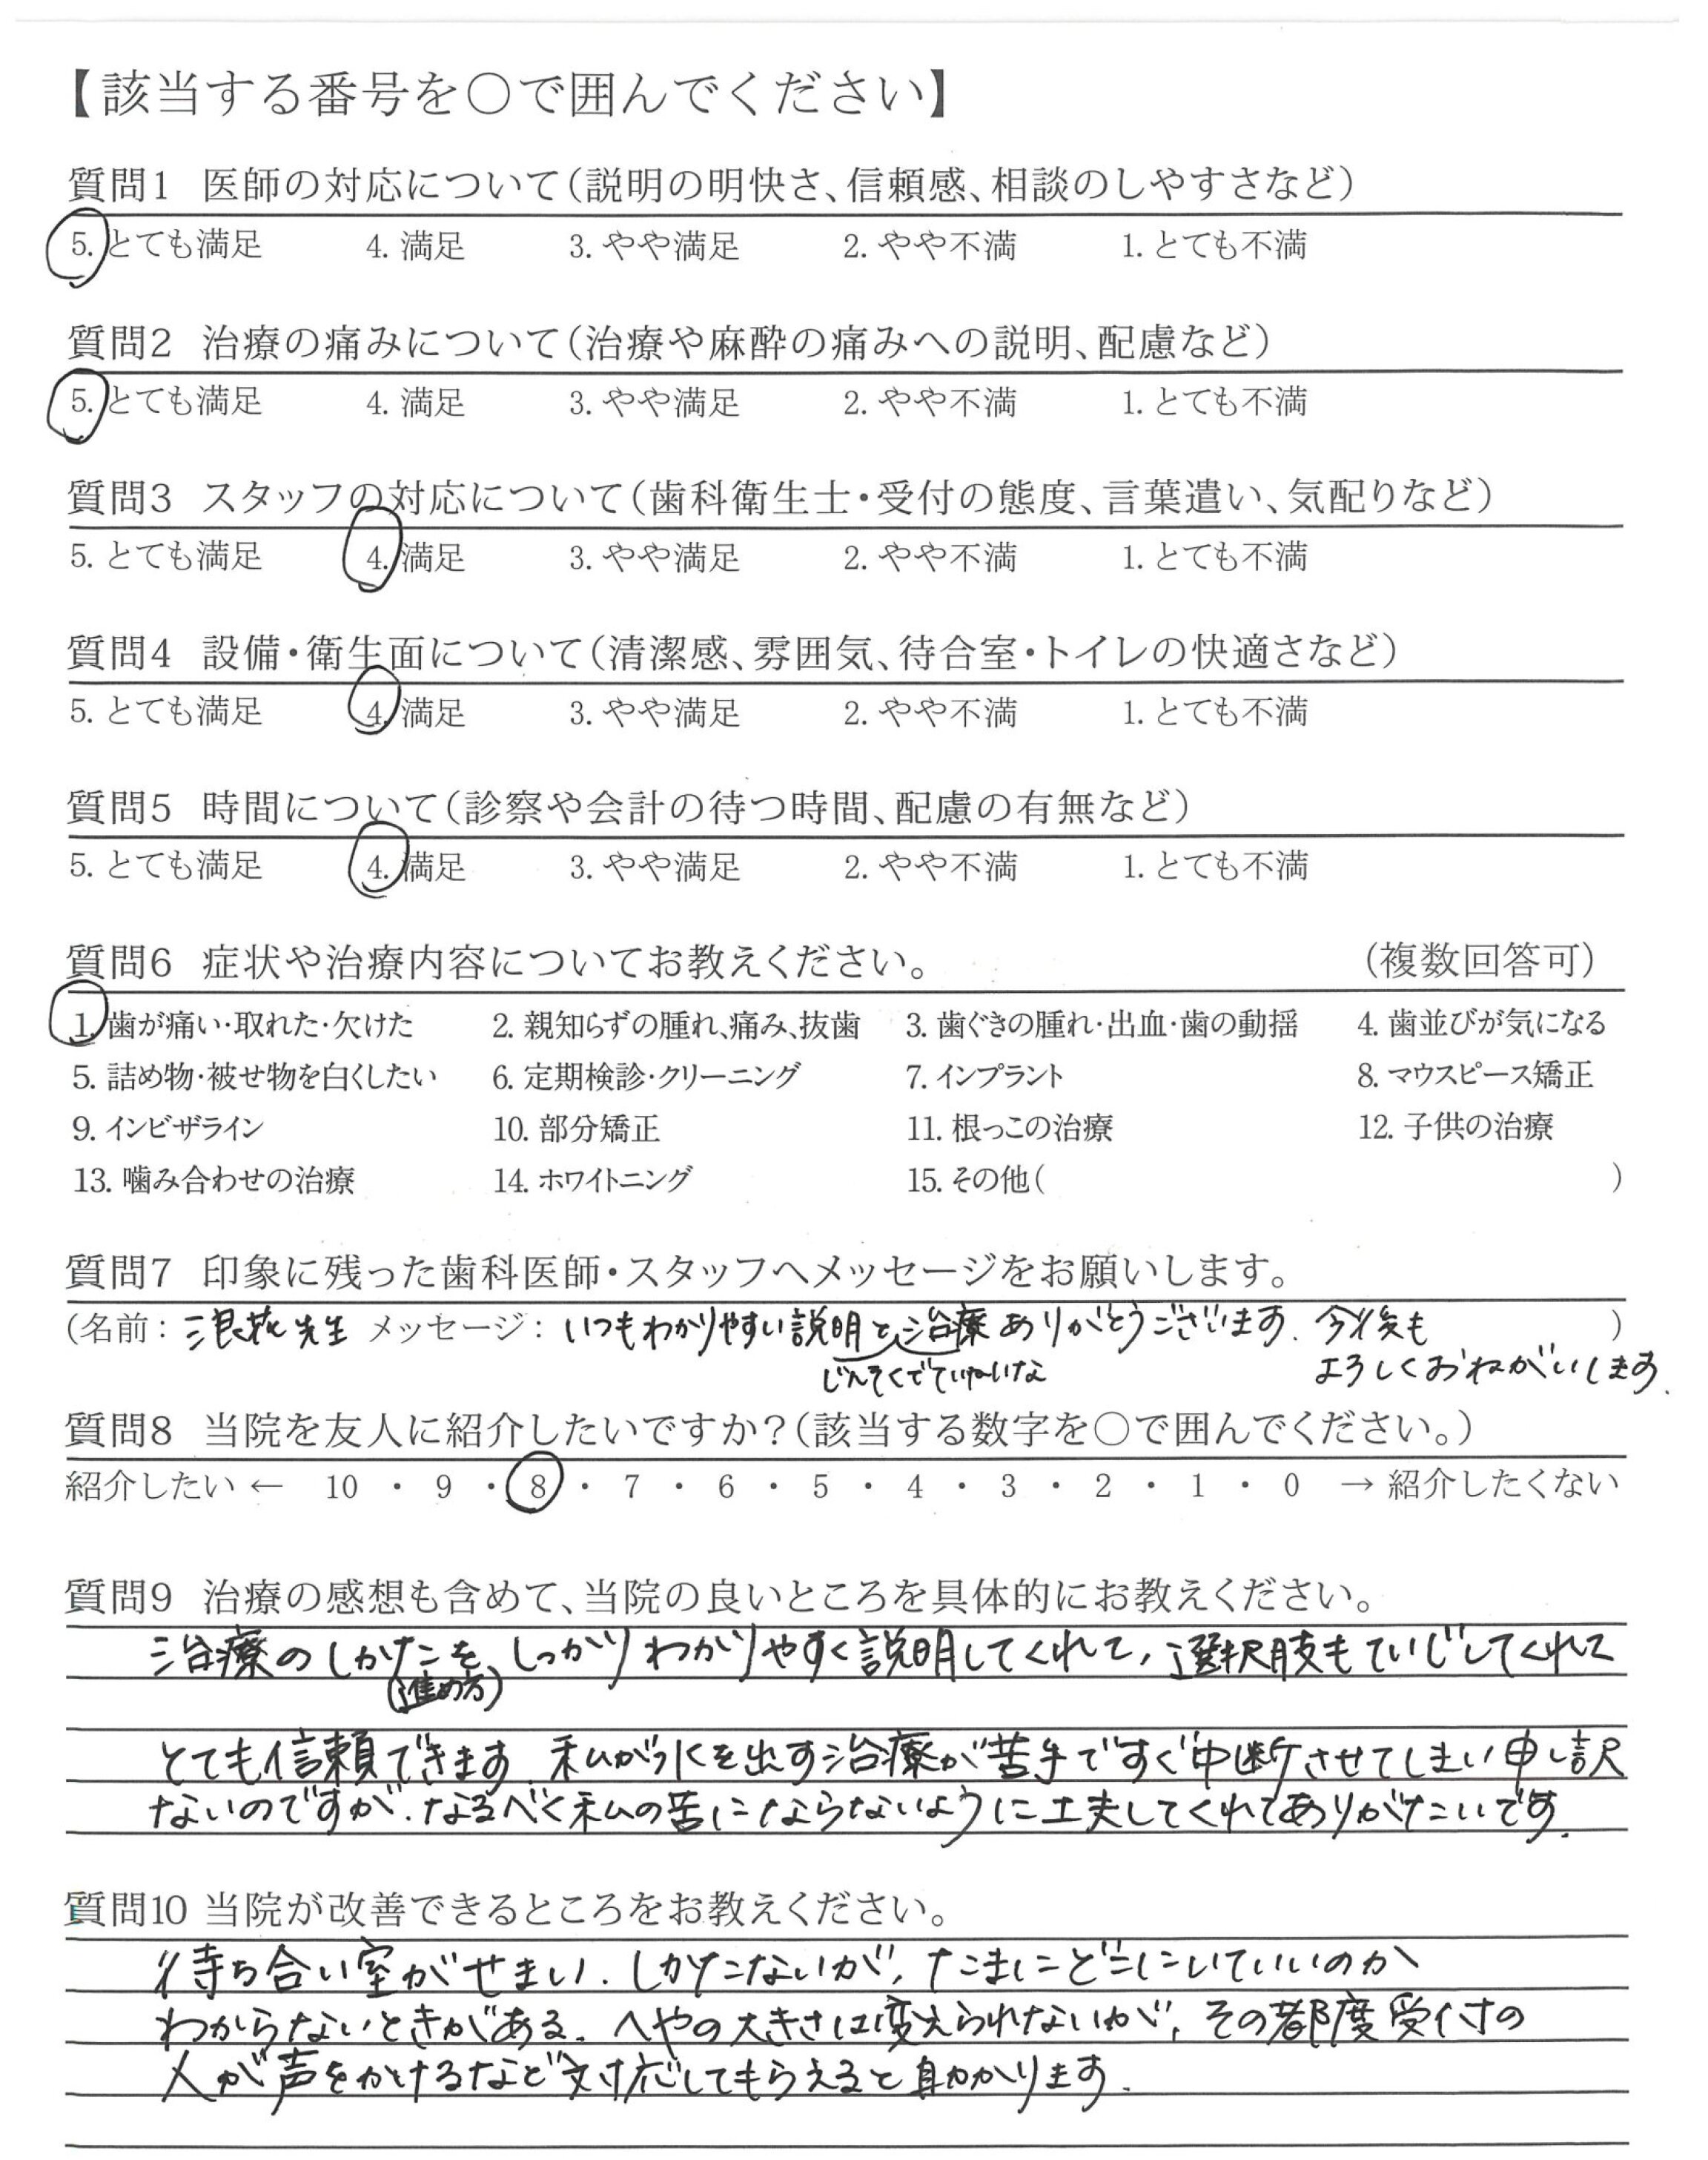 【該当する番号を○で囲んでください】
質問1 医師の対応について（説明の明快さ、信頼感、相談のしやすさなど）
5. とても満足 4. 満足 3. やや満足 2. やや不満 1. とても不満
質問2 治療の痛みについて（治療や麻酔の痛みへの説明、配慮など）
5. とても満足 4. 満足 3. やや満足 2. やや不満 1. とても不満
質問3 スタッフの対応について（歯科衛生士・受付の態度、言葉遣い、気配りなど）
5. とても満足 4. 満足 3. やや満足 2. やや不満 1. とても不満
質問4 設備・衛生面について（清潔感、雰囲気、待合室・トイレの快適さなど）
5. とても満足 4. 満足 3. やや満足 2. やや不満 1. とても不満
質問5 時間について（診察や会計の待つ時間、配慮の有無など）
5. とても満足 4. 満足 3. やや満足 2. やや不満 1. とても不満
質問6 症状や治療内容についてお教えください。 （複数回答可）
1. 歯が痛い・取れた・欠けた 2. 親知らずの腫れ、痛み、抜歯 3. 歯ぐきの腫れ・出血・歯の動揺 4. 歯並びが気になる
5. 詰め物・被せ物を白くしたい 6. 定期検診・クリーニング 7. インプラント 8. マウスピース矯正
9. インビザライン 10. 部分矯正 11. 根っこの治療 12. 子供の治療
13. 噛み合わせの治療 14. ホワイトニング 15. その他（ ）
質問7 印象に残った歯科医師・スタッフへメッセージをお願いします。
（名前： 先生 メッセージ：いつもわかりやすい説明と治療ありがとうございます. 今後も ）
じんそくでていねいな よろしくおねがいします.
質問8 当院を友人に紹介したいですか？（該当する数字を○で囲んでください。）
紹介したい ← 10 ・ 9 ・ 8 ・ 7 ・ 6 ・ 5 ・ 4 ・ 3 ・ 2 ・ 1 ・ 0 → 紹介したくない
質問9 治療の感想も含めて、当院の良いところを具体的にお教えください。
治療のしかたを、しっかりわかりやすく説明してくれて, 選択肢もていじしてくれて
（進め方）
とても信頼できます. 私が水を出す治療が苦手ですぐ中断させてしまい申し訳
ないのですが. なるべく私の苦にならないように工夫してくれてありがたいです.
質問10 当院が改善できるところをお教えください。
待ち合い室がせまい. しかたないが, たまにどこにいていいのか
わからないときがある. へやの大きさは変えられないが, その都度受付の
人が声をかけるなど対応してもらえると助かります.